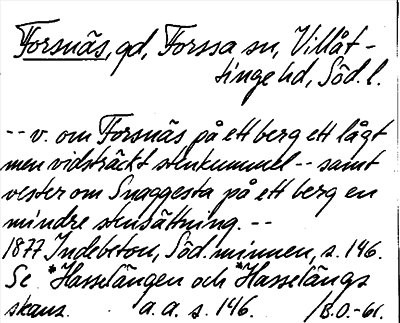 Forsnäs, gd, Forssa sn, Villåt-
tinge hd, Söd. l.
-- v. om Forsnäs på ett berg ett lågt
men vidsträckt stenkummel -- samt
vester om Snaggesta på ett berg en
mindre stensättning. --
1877 Indebetou, Söd. minnen, s. 146.
Se *Hasselängen och *Hasselängs
skans. a. a. s. 146. B.O.-61.